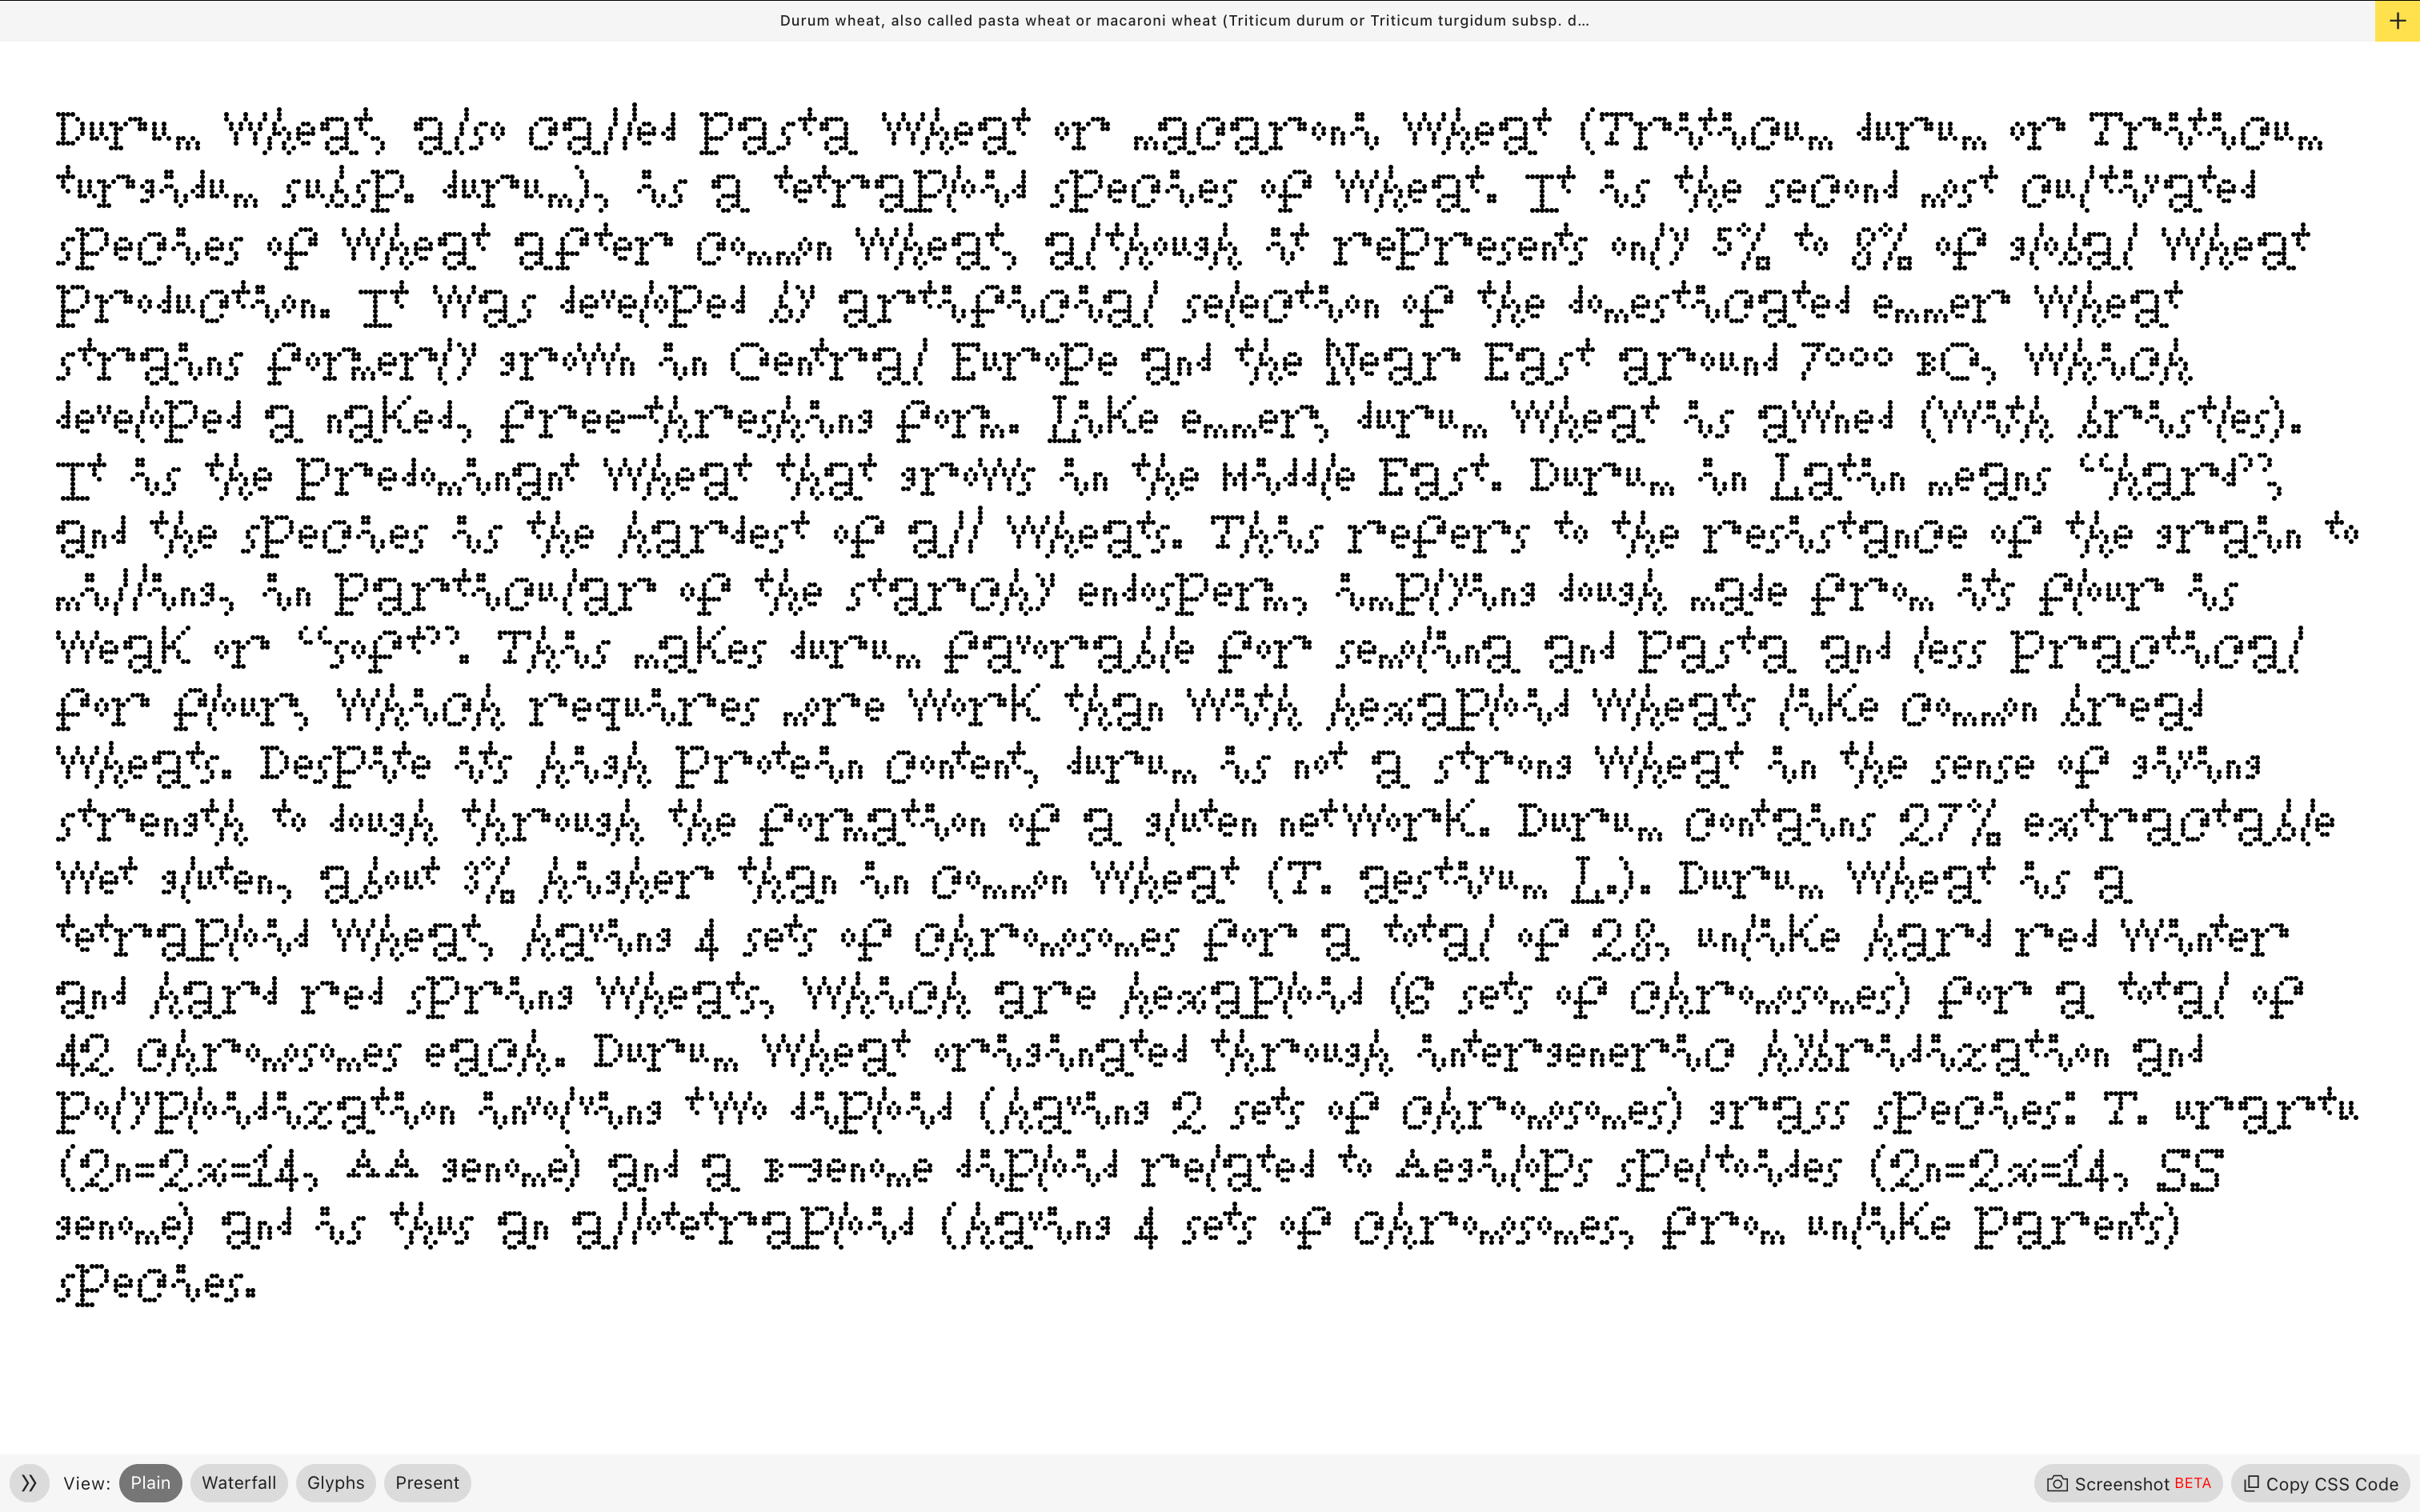 Durum wheat, also called pasta wheat or macaroni wheat (Triticum durum or Triticum turgidum subsp. d...
Durum wheat, also called pasta wheat or macaroni wheat (Triticum durum or Triticum
turgidum subsp. durum), is a tetraploid species of wheat. It is the second most cultivated
species of wheat after common wheat, although it represents only 5% to 8% of global wheat
production. It was developed by artificial selection of the domesticated emmer wheat
strains formerly grown in Central Europe and the Near East around 7000 BC, which
developed a naked, free-threshing form. Like emmer, durum wheat is awned (with bristles).
It is the predominant wheat that grows in the Middle East. Durum in Latin means “hard”,
and the species is the hardest of all wheats. This refers to the resistance of the grain to
milling, in particular of the starchy endosperm, implying dough made from its flour is
weak or “soft”. This makes durum favorable for semolina and pasta and less practical
for flour, which requires more work than with hexaploid wheats like common bread
wheats. Despite its high protein content, durum is not a strong wheat in the sense of giving
strength to dough through the formation of a gluten network. Durum contains 27% extractable
wet gluten, about 3% higher than in common wheat (T. aestivum L.). Durum wheat is a
tetraploid wheat, having 4 sets of chromosomes for a total of 28, unlike hard red winter
and hard red spring wheats, which are hexaploid (6 sets of chromosomes) for a total of
42 chromosomes each. Durum wheat originated through intergeneric hybridization and
polyploidization involving two diploid (having 2 sets of chromosomes) grass species: T. urartu
(2n=2x=14, AA genome) and a B-genome diploid related to Aegilops speltoides (2n=2x=14, SS
genome) and is thus an allotetraploid (having 4 sets of chromosomes, from unlike parents)
species.
View: Plain Waterfall Glyphs Present Screenshot BETA Copy CSS Code